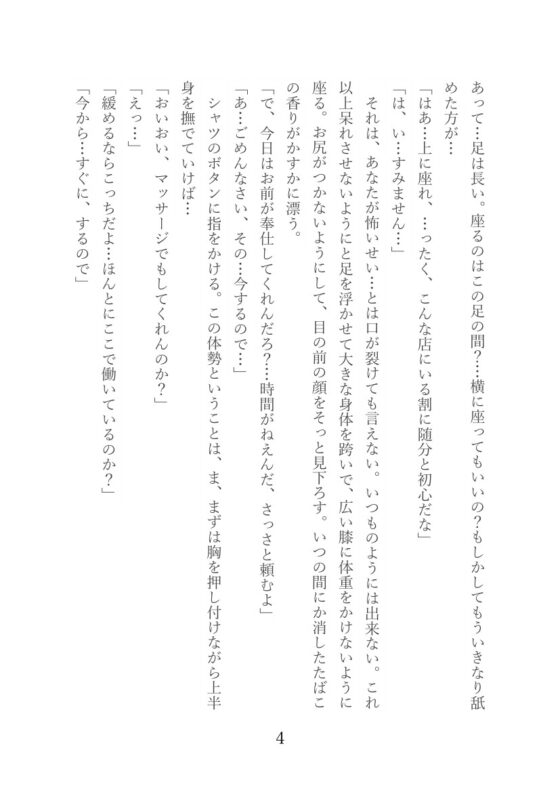 あって…足は長い。座るのはこの足の間？…横に座ってもいいの？もしかしてもういきなり舐
めた方が…
「はあ…上に座れ、…ったく、こんな店にいる割に随分と初心だな」
「は、い…すみません…」
　それは、あなたが怖いせい…とは口が裂けても言えない。いつものようには出来ない。これ
以上呆れさせないようにと足を浮かせて大きな身体を跨いで、広い膝に体重をかけないように
座る。お尻がつかないようにして、目の前の顔をそっと見下ろす。いつの間にか消したたばこ
の香りがかすかに漂う。
「で、今日はお前が奉仕してくれんだろ？…時間がねえんだ、さっさと頼むよ」
「あ…ごめんなさい、その…今するので…」
　シャツのボタンに指をかける。この体勢ということは、ま、まずは胸を押し付けながら上半
身を撫でていけば…
「おいおい、マッサージでもしてくれんのか？」
「えっ…」
「緩めるならこっちだよ…ほんとにここで働いているのか？」
「今から…すぐに、するので」
4